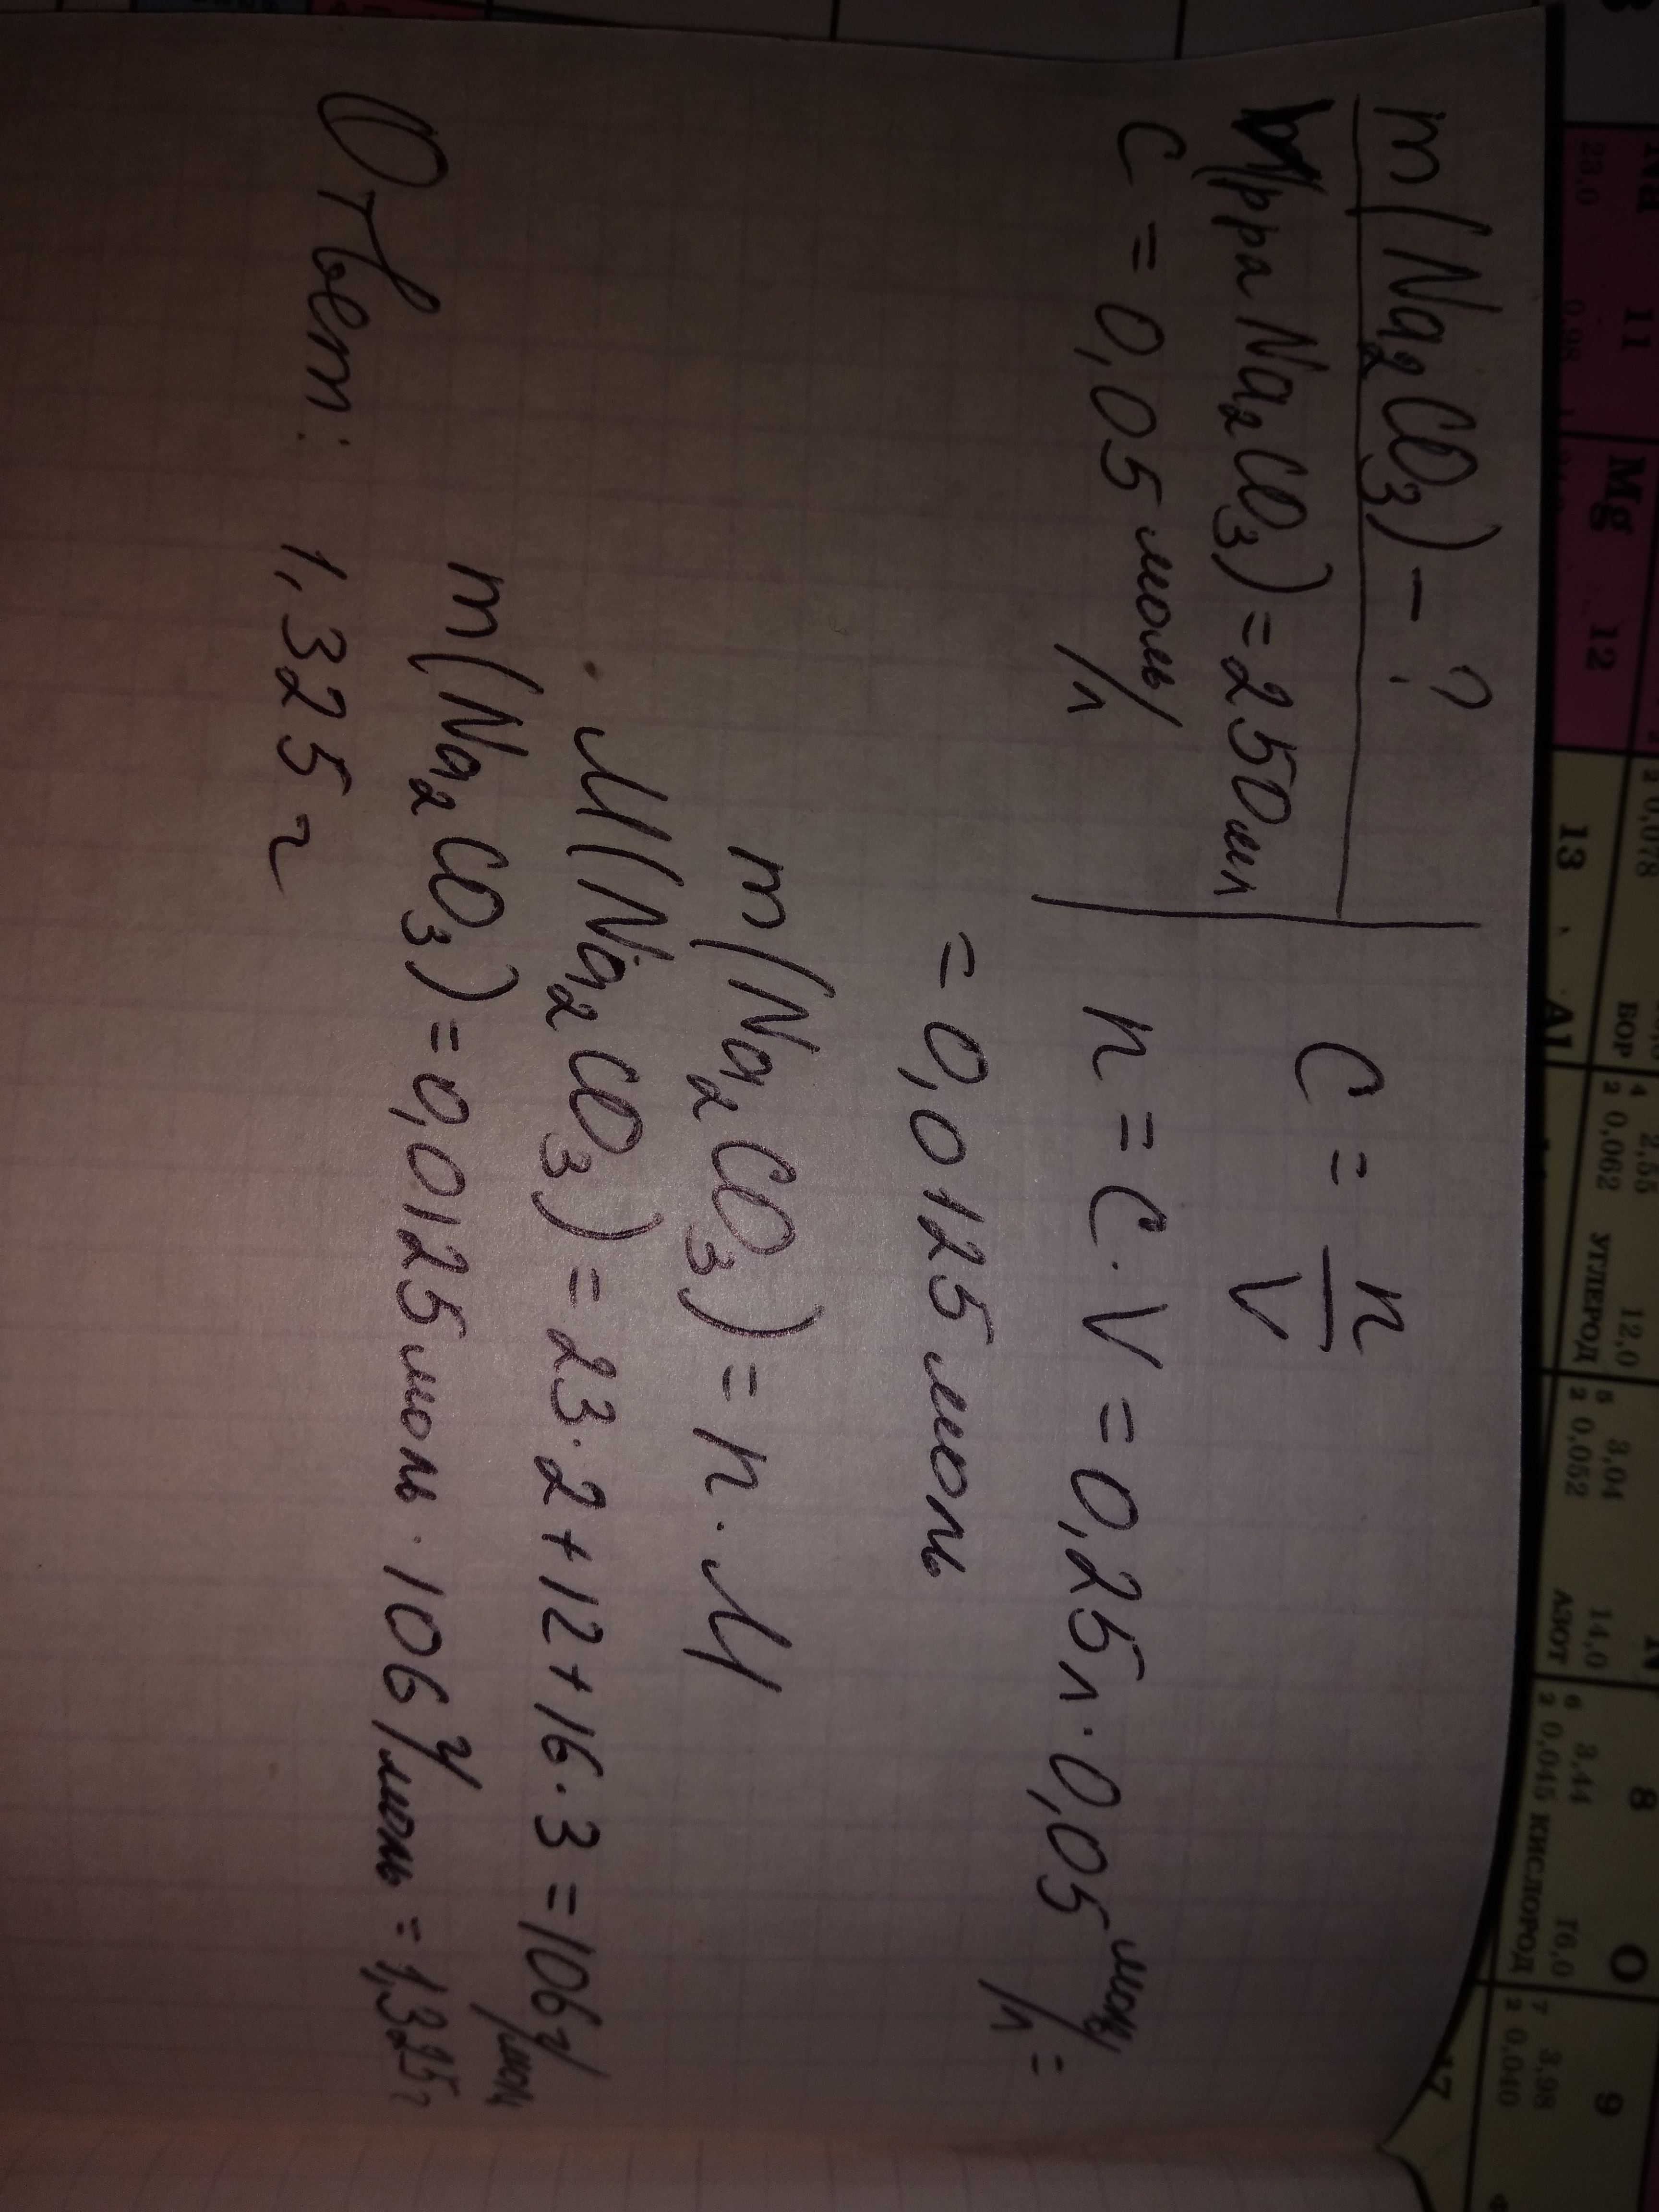 m(Na₂CO₃) - ?
V(р-ра Na₂CO₃) = 250 мл
C = 0,05 моль/л
C = n/V
n = C · V = 0,25 л · 0,05 моль/л =
= 0,0125 моль
m(Na₂CO₃) = n · M
M(Na₂CO₃) = 23 · 2 + 12 + 16 · 3 = 106 г/моль
m(Na₂CO₃) = 0,0125 моль · 106 г/моль = 1,325 г
Ответ: 1,325 г
11
Mg 12
23,0
0,98
13
Al
БОР
2 0,078
4 2,55
2 0,062
12,0
УГЛЕРОД
5 3,04
2 0,052
14,0
АЗОТ
6 3,44
2 0,045
8 O
16,0
КИСЛОРОД
7 3,98
2 0,040
9
17